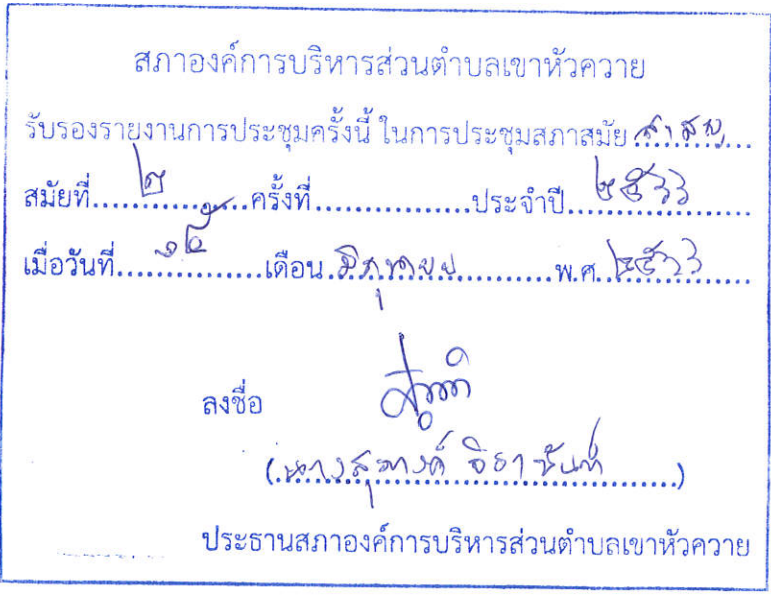 สภาองค์การบริหารส่วนตำบลเขาหัวควาย
รับรองรายงานการประชุมครั้งนี้ ในการประชุมสภาสมัย สามัญ
สมัยที่ ๒ ครั้งที่ ประจำปี ๒๕๖๖
เมื่อวันที่ ๑๕ เดือน มิถุนายน พ.ศ. ๒๕๖๖
ลงชื่อ
(นางสุภางค์
ประธานสภาองค์การบริหารส่วนตำบลเขาหัวควาย